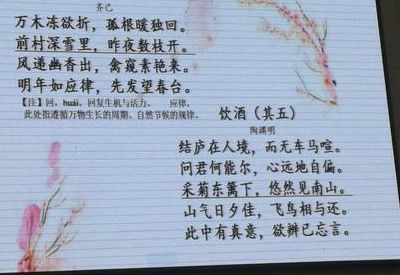 齐己
万木冻欲折，孤根暖独回。
前村深雪里，昨夜数枝开。
风递幽香出，禽窥素艳来。
明年如应律，先发望春台。
【注】回，huái，回复生机与活力、 应律，
此处指遵循万物生长的周期、自然节候的规律。
饮酒（其五）
陶渊明
结庐在人境，而无车马喧。
问君何能尔，心远地自偏。
采菊东篱下，悠然见南山。
山气日夕佳，飞鸟相与还。
此中有真意，欲辨已忘言。